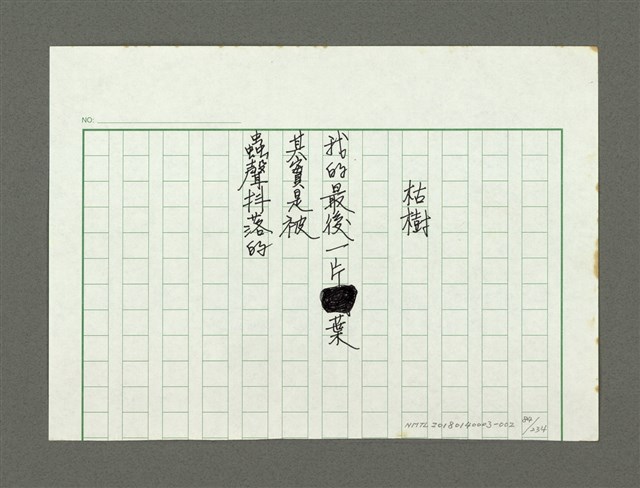 NO:
枯樹
我的最後一片葉
其實是被
蟲聲抖落的
NMTL20180140003-002 84/234